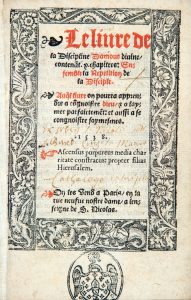 Le liure de
la Discipline Damour diuine:
contenāt. x. chapitres: Ens
semble la Repetition de
la Disciple.
Auquel liure on pourra appren-
dre a cōgnoistre dieu, & a lay-
mer parfaictemēt: et aussi a se
congnoistre soymesmes.
.1538.
Ascensus purpureus media cha
ritate constrauit propter filias
Hierusalem.
On les vend a Paris, en la
rue neufue nostre dame, a len-
seigne de S. Nicolas.